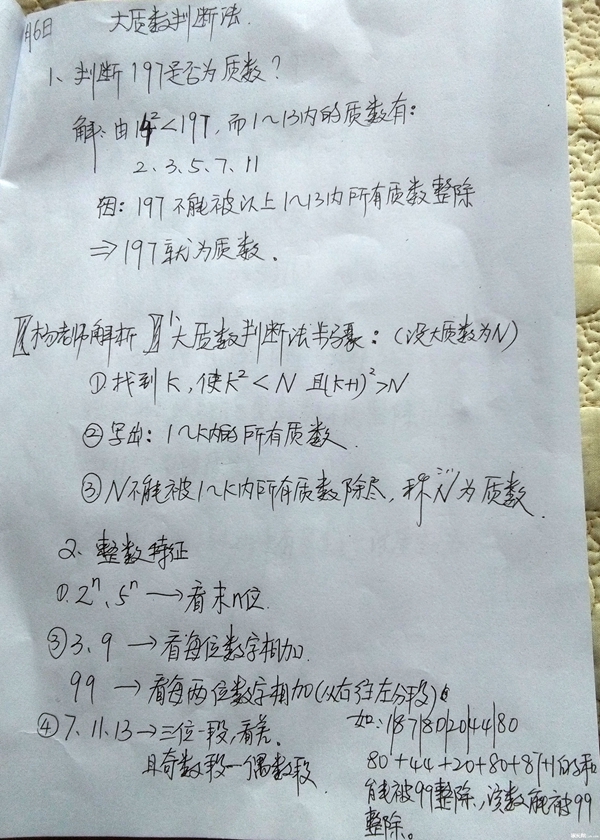 月6日
大质数判断法.
1、判断197是否为质数?
解:由14²<197,而1~13内的质数有:
2、3、5、7、11
因:197不能被以上1~13内所有质数整除
⇒197就为质数.
〖杨老师解析〗大质数判断法步骤:(设大质数为N)
①找到K,使K²<N 且(K+1)²>N
②写出:1~K内的所有质数.
③N不能被1~K内所有质数除尽,称"N"为质数.
2、整数特征
①.2ⁿ、5ⁿ→看末n位.
③3、9→看每位数字相加.
99→看每两位数字相加(从右往左分段)
如:1|87|80|20|44|80
④7、11、13→三位一段,看差.
且奇数段一偶数段.
80+44+20+80+87+1的和
能被99整除,该数能被99
整除。